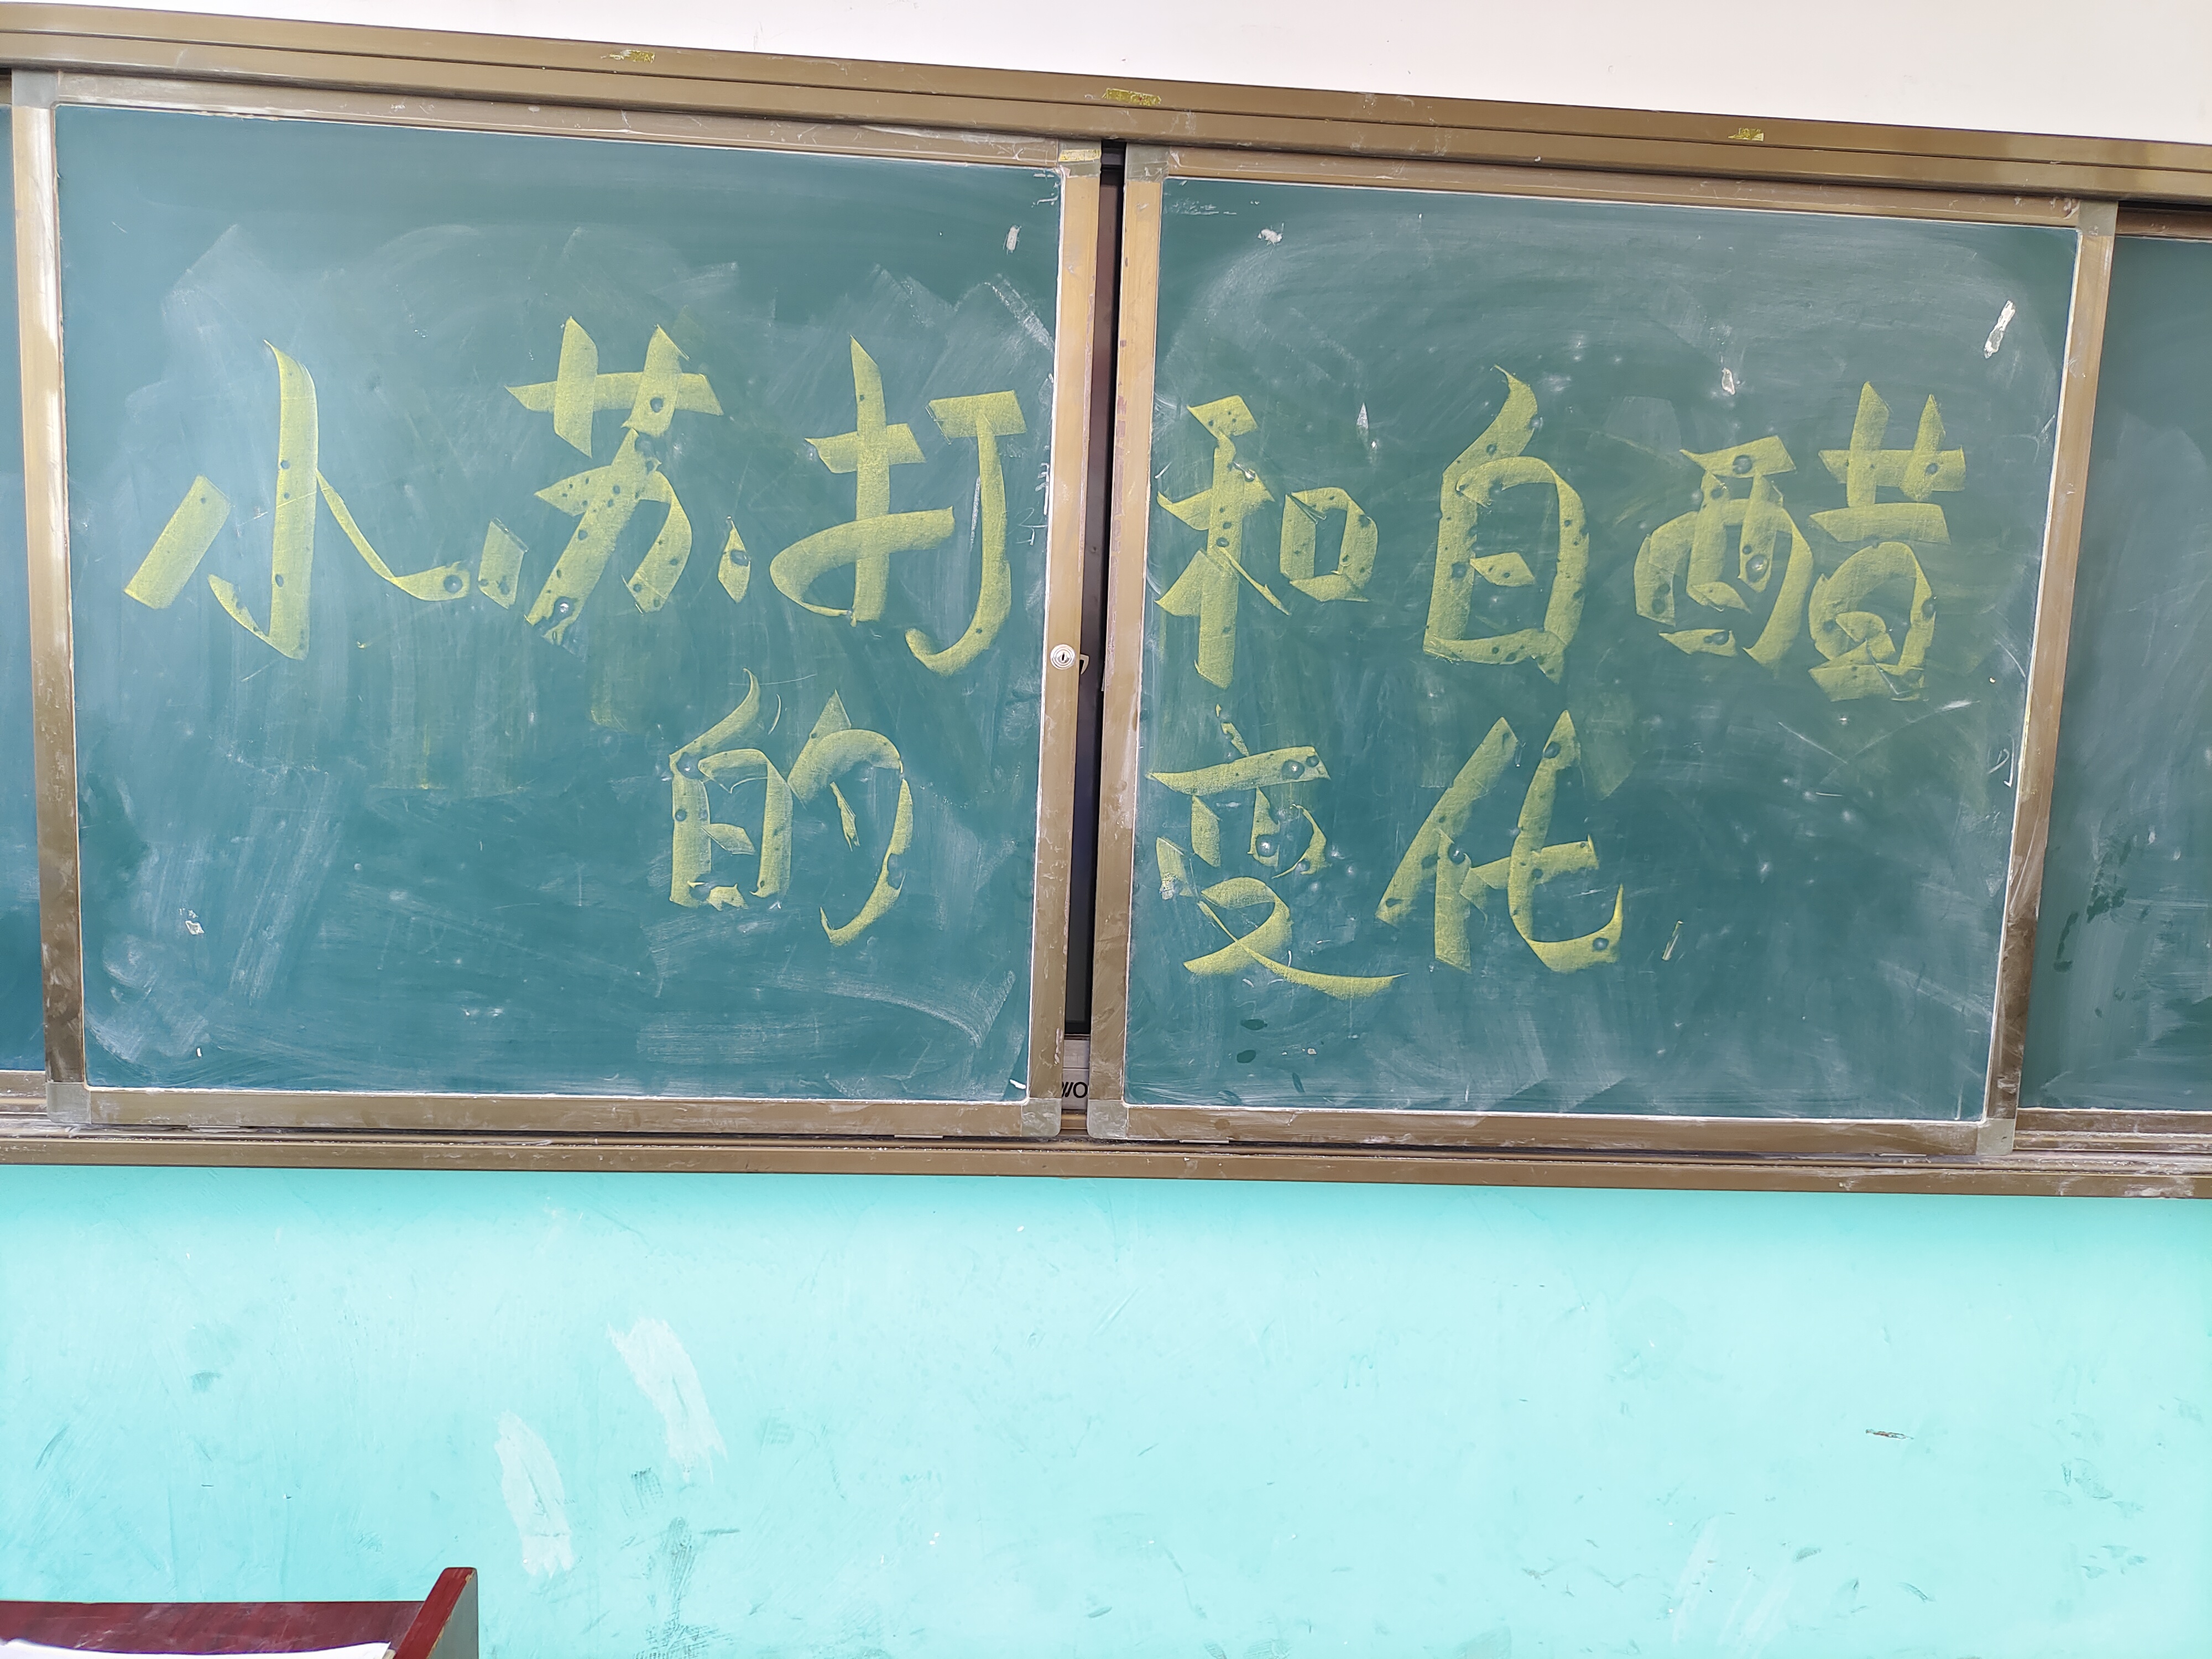 小苏打和白醋
的变化